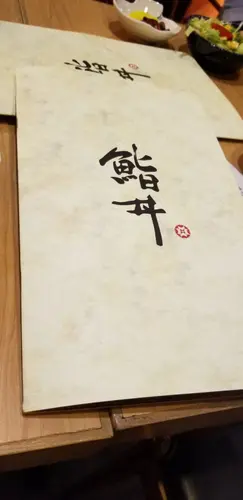 鮨
丼
鮨丼